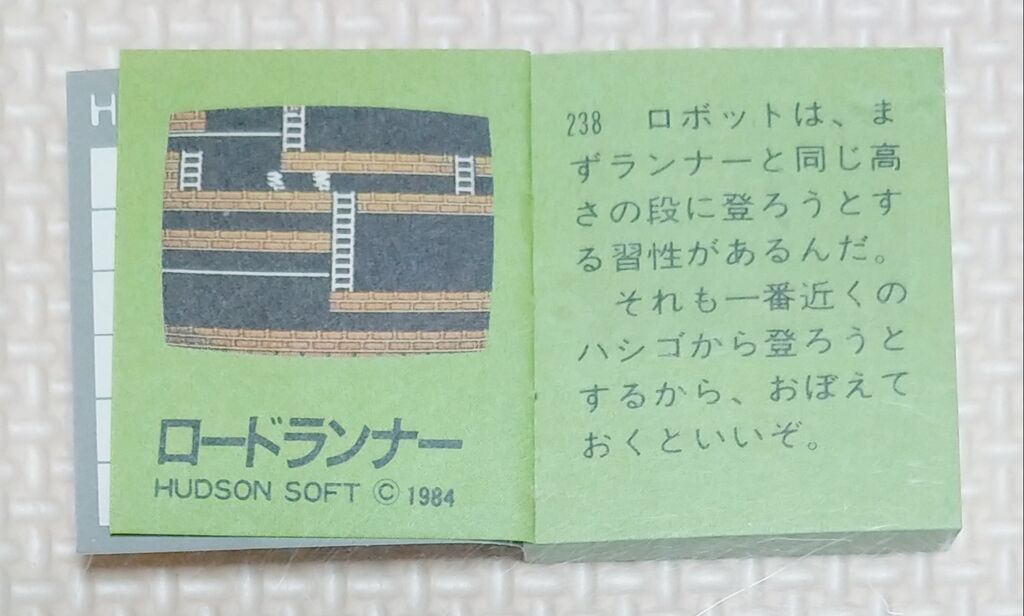 H
ロードランナー
HUDSON SOFT © 1984
238 ロボットは、ま
ずランナーと同じ高
さの段に登ろうとす
る習性があるんだ。
それも一番近くの
ハシゴから登ろうと
するから、おぼえて
おくといいぞ。